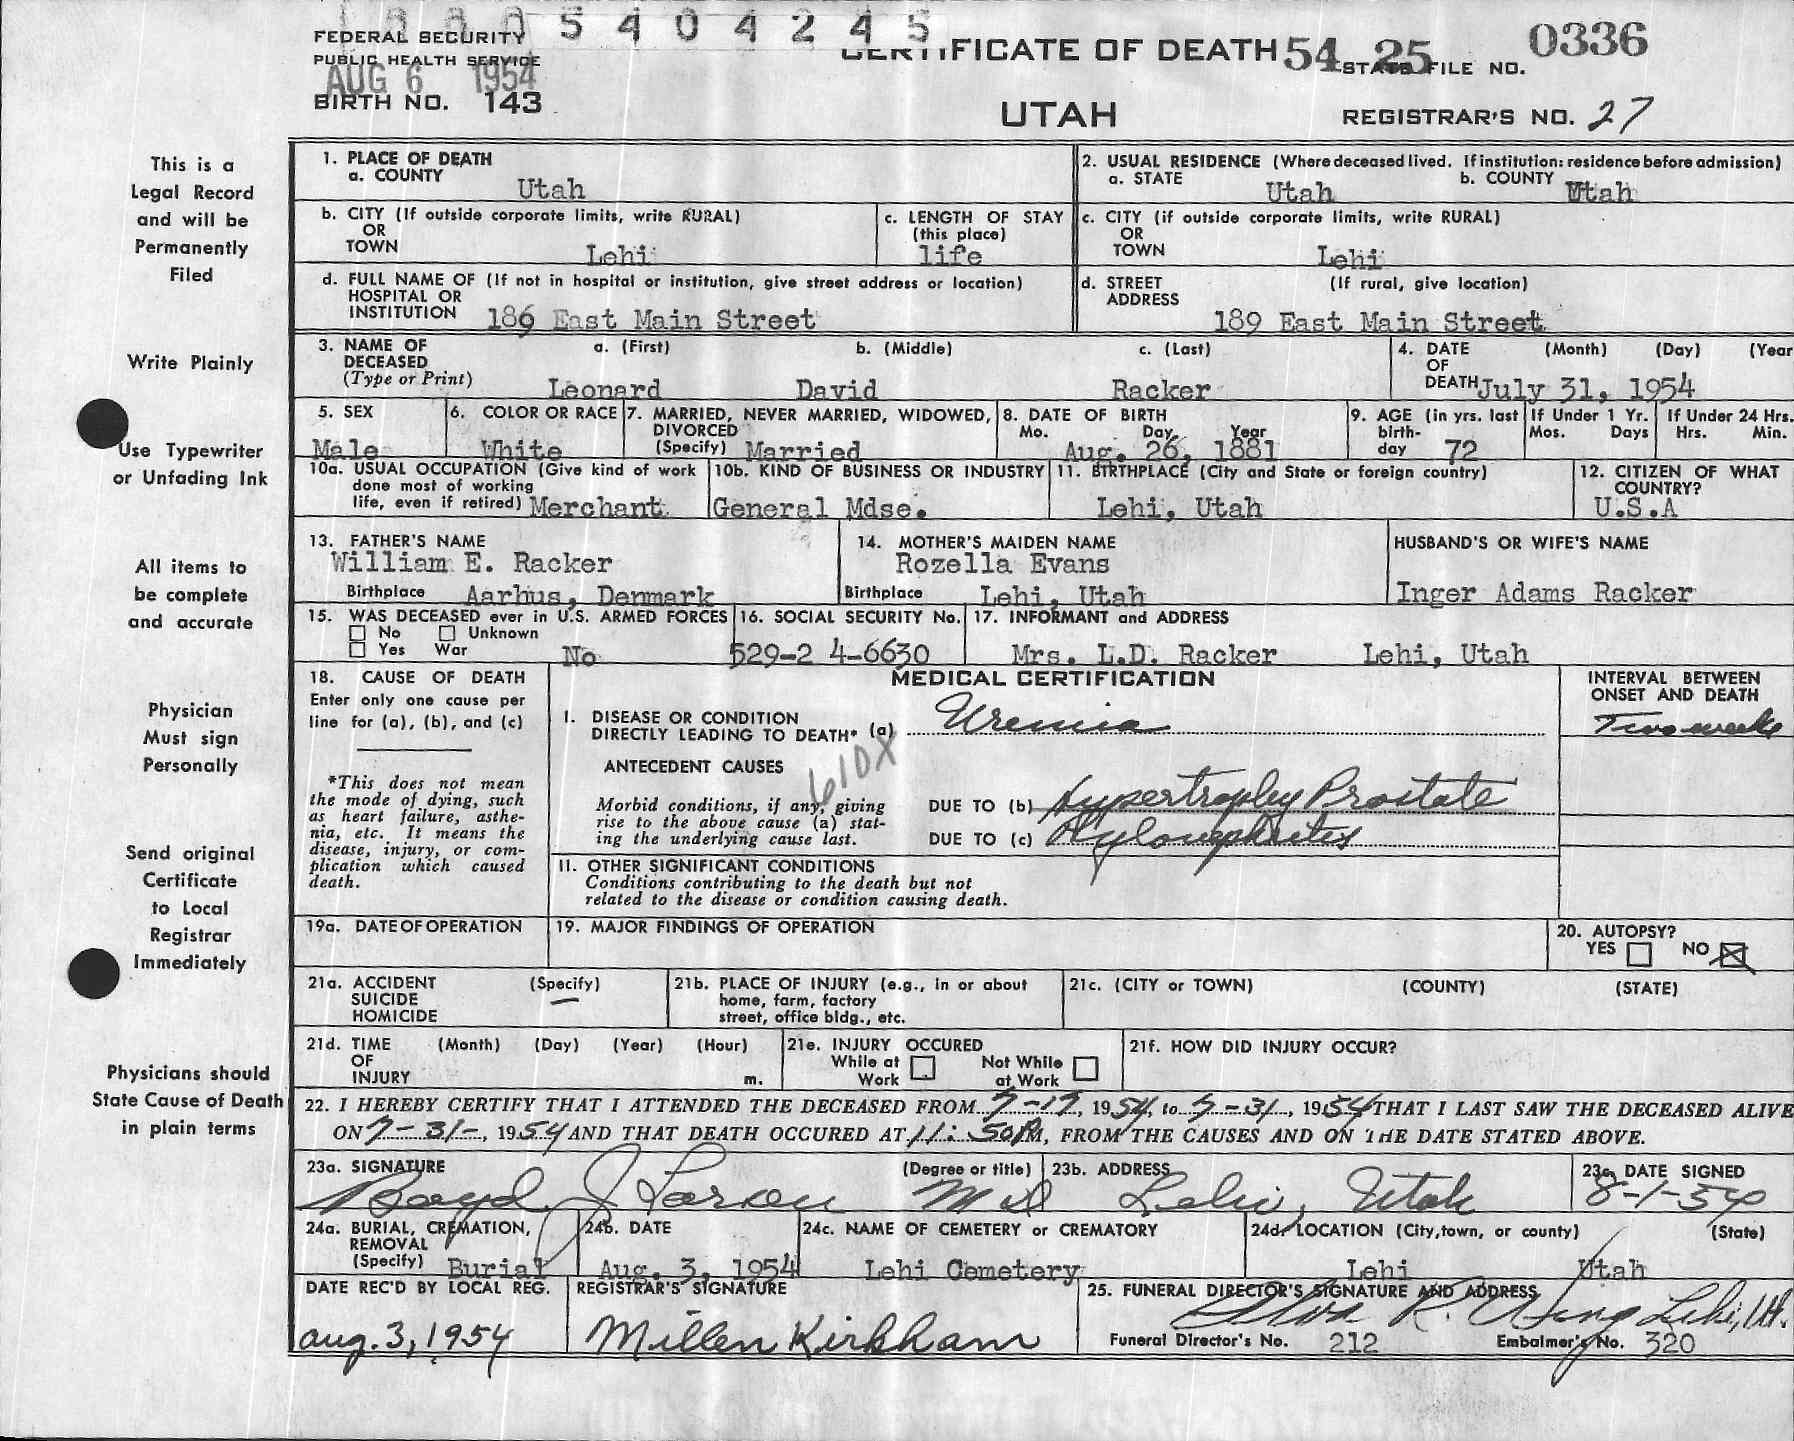 5 4 0 4 2 4 5
FEDERAL SECURITY
PUBLIC HEALTH SERVICE
AUG 6 1954
BIRTH NO. 143
CERTIFICATE OF DEATH 54 25 0336
STATE FILE NO.
UTAH
REGISTRAR'S NO. 27
This is a
Legal Record
and will be
Permanently
Filed
Write Plainly
Use Typewriter
or Unfading Ink
All items to
be complete
and accurate
Physician
Must sign
Personally
Send original
Certificate
to Local
Registrar
Immediately
Physicians should
State Cause of Death
in plain terms
1. PLACE OF DEATH
a. COUNTY Utah
2. USUAL RESIDENCE (Where deceased lived. If institution: residence before admission)
a. STATE Utah b. COUNTY Utah
b. CITY (If outside corporate limits, write RURAL)
OR
TOWN Lehi
c. LENGTH OF STAY
(this place)
life
c. CITY (if outside corporate limits, write RURAL)
OR
TOWN Lehi
d. FULL NAME OF (If not in hospital or institution, give street address or location)
HOSPITAL OR
INSTITUTION 186 East Main Street
d. STREET (If rural, give location)
ADDRESS
189 East Main Street
3. NAME OF a. (First) b. (Middle) c. (Last)
DECEASED
(Type or Print) Leonard David Racker
4. DATE (Month) (Day) (Year
OF
DEATH July 31, 1954
5. SEX
Male
6. COLOR OR RACE
White
7. MARRIED, NEVER MARRIED, WIDOWED,
DIVORCED
(Specify) Married
8. DATE OF BIRTH
Mo. Day Year
Aug. 26, 1881
9. AGE (in yrs. last
birth-
day 72
If Under 1 Yr.
Mos. Days
If Under 24 Hrs.
Hrs. Min.
10a. USUAL OCCUPATION (Give kind of work
done most of working
life, even if retired) Merchant
10b. KIND OF BUSINESS OR INDUSTRY
General Mdse.
11. BIRTHPLACE (City and State or foreign country)
Lehi, Utah
12. CITIZEN OF WHAT
COUNTRY?
U.S.A
13. FATHER'S NAME
William E. Racker
Birthplace Aarhus, Denmark
14. MOTHER'S MAIDEN NAME
Rozella Evans
Birthplace Lehi, Utah
HUSBAND'S OR WIFE'S NAME
Inger Adams Racker
15. WAS DECEASED ever in U.S. ARMED FORCES
No Unknown
Yes War No
16. SOCIAL SECURITY No.
529-2 4-6630
17. INFORMANT and ADDRESS
Mrs. L.D. Racker Lehi, Utah
18. CAUSE OF DEATH
Enter only one cause per
line for (a), (b), and (c)
*This does not mean
the mode of dying, such
as heart failure, asthe-
nia, etc. It means the
disease, injury, or com-
plication which caused
death.
MEDICAL CERTIFICATION
I. DISEASE OR CONDITION
DIRECTLY LEADING TO DEATH* (a) Uremia
610X
ANTECEDENT CAUSES
Morbid conditions, if any, giving
rise to the above cause (a) stat-
ing the underlying cause last.
DUE TO (b) Hypertrophy Prostate
DUE TO (c) Pylonephritis
II. OTHER SIGNIFICANT CONDITIONS
Conditions contributing to the death but not
related to the disease or condition causing death.
INTERVAL BETWEEN
ONSET AND DEATH
Two weeks
19a. DATE OF OPERATION
19. MAJOR FINDINGS OF OPERATION
20. AUTOPSY?
YES NO
21a. ACCIDENT (Specify)
SUICIDE
HOMICIDE
21b. PLACE OF INJURY (e.g., in or about
home, farm, factory
street, office bldg., etc.
21c. (CITY or TOWN) (COUNTY) (STATE)
21d. TIME (Month) (Day) (Year) (Hour)
OF
INJURY m.
21e. INJURY OCCURED
While at Not While
Work at Work
21f. HOW DID INJURY OCCUR?
22. I HEREBY CERTIFY THAT I ATTENDED THE DECEASED FROM 7-17, 1954, to 7-31, 1954 THAT I LAST SAW THE DECEASED ALIVE
ON 7-31-, 1954 AND THAT DEATH OCCURED AT 11:50PM, FROM THE CAUSES AND ON THE DATE STATED ABOVE.
23a. SIGNATURE (Degree or title)
Boyd J Larson MD
23b. ADDRESS
Lehi, Utah
23c. DATE SIGNED
8-1-54
24a. BURIAL, CREMATION,
REMOVAL
(Specify) Burial
24b. DATE
Aug. 3, 1954
24c. NAME OF CEMETERY or CREMATORY
Lehi Cemetery
24d. LOCATION (City, town, or county) (State)
Lehi Utah
DATE REC'D BY LOCAL REG.
Aug. 3, 1954
REGISTRAR'S SIGNATURE
Millen Kirkham
25. FUNERAL DIRECTOR'S SIGNATURE AND ADDRESS
R. Wing Lehi, Ut.
Funeral Director's No. 212 Embalmer's No. 320